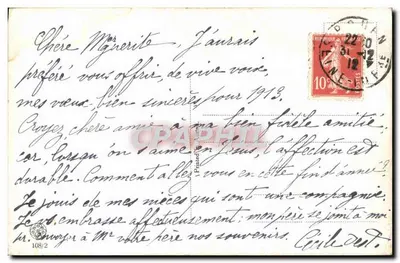 Chère Marguerite. J'aurais
préféré vous offrir, de vive voix,
mes vœux bien sincères pour 1913.
Croyez, chère amie, à ma bien fidèle amitié,
car, lorsqu'on s'aime en Jésus, l'affection est
durable. Comment allez-vous en cette fin d'année?
Je jouis de mes nièces qui sont une compagnie.
Je vs embrasse affectueusement: mon père se joint à moi
pr envoyer à Mr votre père nos souvenirs.
Cécile
ROUEN
22 30
31-12
12
SEINE-INFRE
10
CARTHAGO
108/2